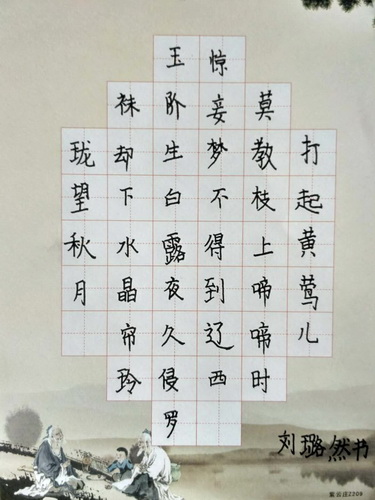 打起黄莺儿
莫教枝上啼啼时
惊妾梦不得到辽西
玉阶生白露夜久侵罗
袜却下水晶帘玲
珑望秋月
刘璐然书